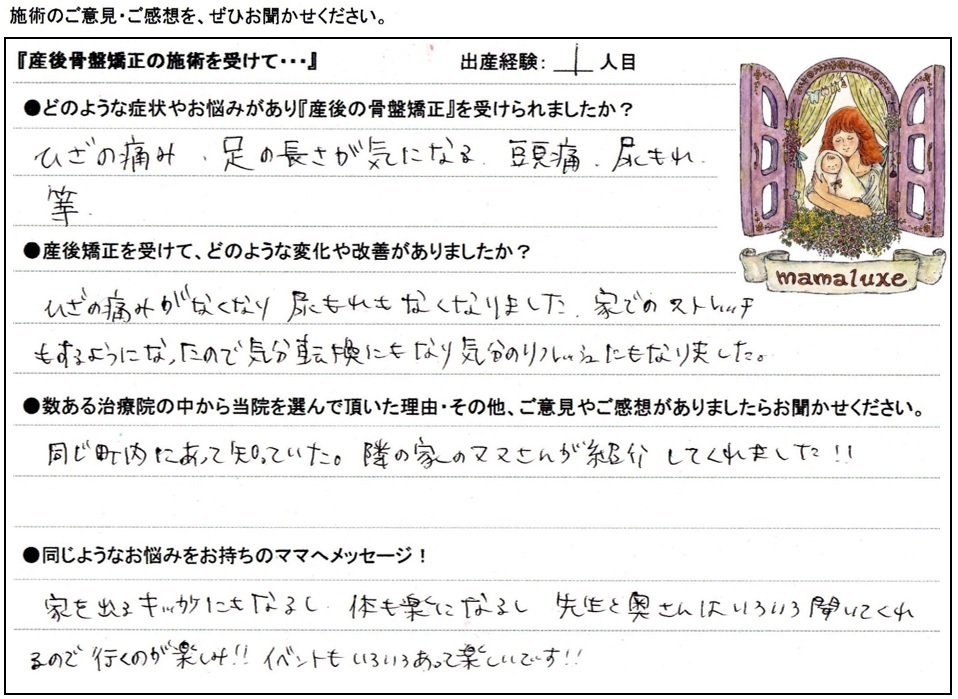 施術のご意見・ご感想を、ぜひお聞かせください。
『産後骨盤矯正の施術を受けて・・・』 出産経験： 1 人目
●どのような症状やお悩みがあり『産後の骨盤矯正』を受けられましたか？
ひざの痛み、足の長さが気になる、頭痛、尿もれ、
等、
●産後矯正を受けて、どのような変化や改善がありましたか？
ひざの痛みがなくなり 尿もれもなくなりました、家でのストレッチ
もするようになったので気分転換にもなり気分のリフレッシュにもなりました。
mamaluxe
●数ある治療院の中から当院を選んで頂いた理由・その他、ご意見やご感想がありましたらお聞かせください。
同じ町内にあって知っていた。隣の家のママさんが紹介してくれました!!
●同じようなお悩みをお持ちのママへメッセージ！
家を出るキッカケにもなるし、体も楽になるし 先生と奥さんはいろいろ聞いてくれ
るので行くのが楽しみ!! イベントもいろいろあって楽しいです!!